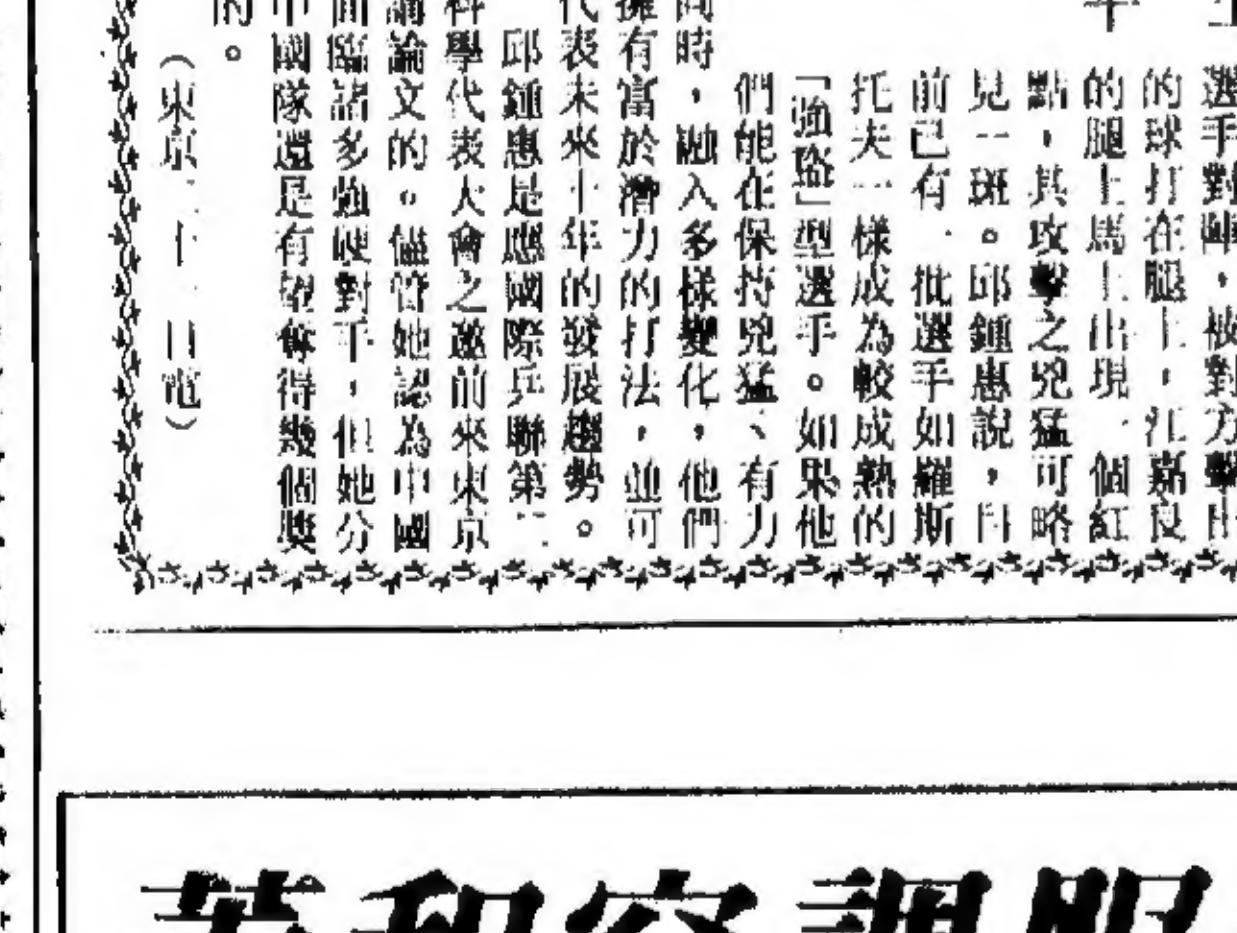 選手對陣，被對方擊出
的球打在腿上，江嘉良
的腿上馬上出現一個紅
點，其攻擊之兇猛可略
見一斑。邱鍾惠說，目
前已有一批選手如羅斯
托夫一樣成為較成熟的
「強盜」型選手。如果他
們能在保持兇猛、有力
同時，融入多樣變化，他們
擁有富於潛力的打法，並可
代表未來十年的發展趨勢。
邱鍾惠是應國際乒聯第二
科學代表大會之邀前來東京
論文的。儘管她認為中國
面臨諸多強硬對手，但她分
中國隊還是有望奪得幾個獎
的。
（東京二十一日電）
和空調服